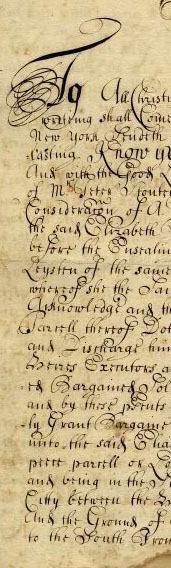 To All Christi
writeing shall Come
New York Sendeth
lasting Know ye
And with the Good L
of Mr Peter
Consideration of A
the said Elizabeth
before the Ensealin
Leysten of the same
whereof she the Sai
Acknowledge and th
Parcell thereof Dot
and Discharge him
Heires Executors a
ed Bargained Sol
and by these pñts
ly Grant Bargaine
unto the said
peece parcell or Lo
and being in the
Citty between the
And the Ground of
to the South